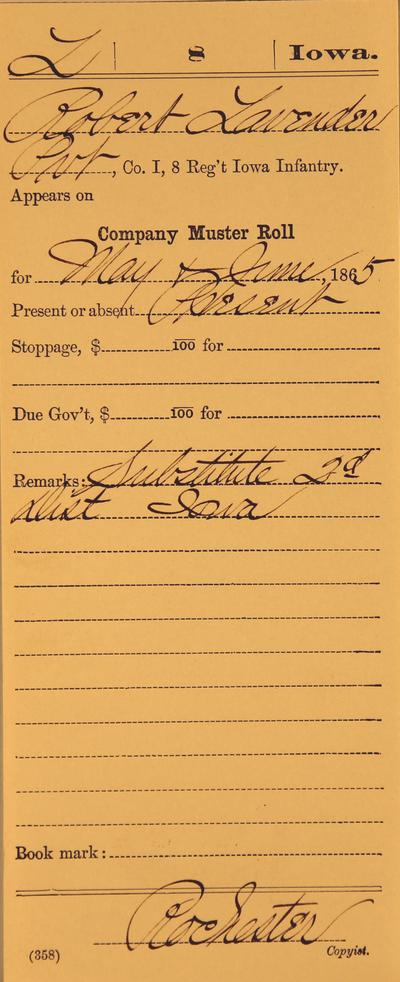 L | 8 | Iowa.
Robert Lavender
Pvt, Co. I, 8 Reg't Iowa Infantry.
Appears on
Company Muster Roll
for May & June, 1865
Present or absent Present
Stoppage, $ 100 for
Due Gov't, $ 100 for
Remarks: Substitute 2d
Dist Iowa
Book mark:
Rochester
(358) Copyist.